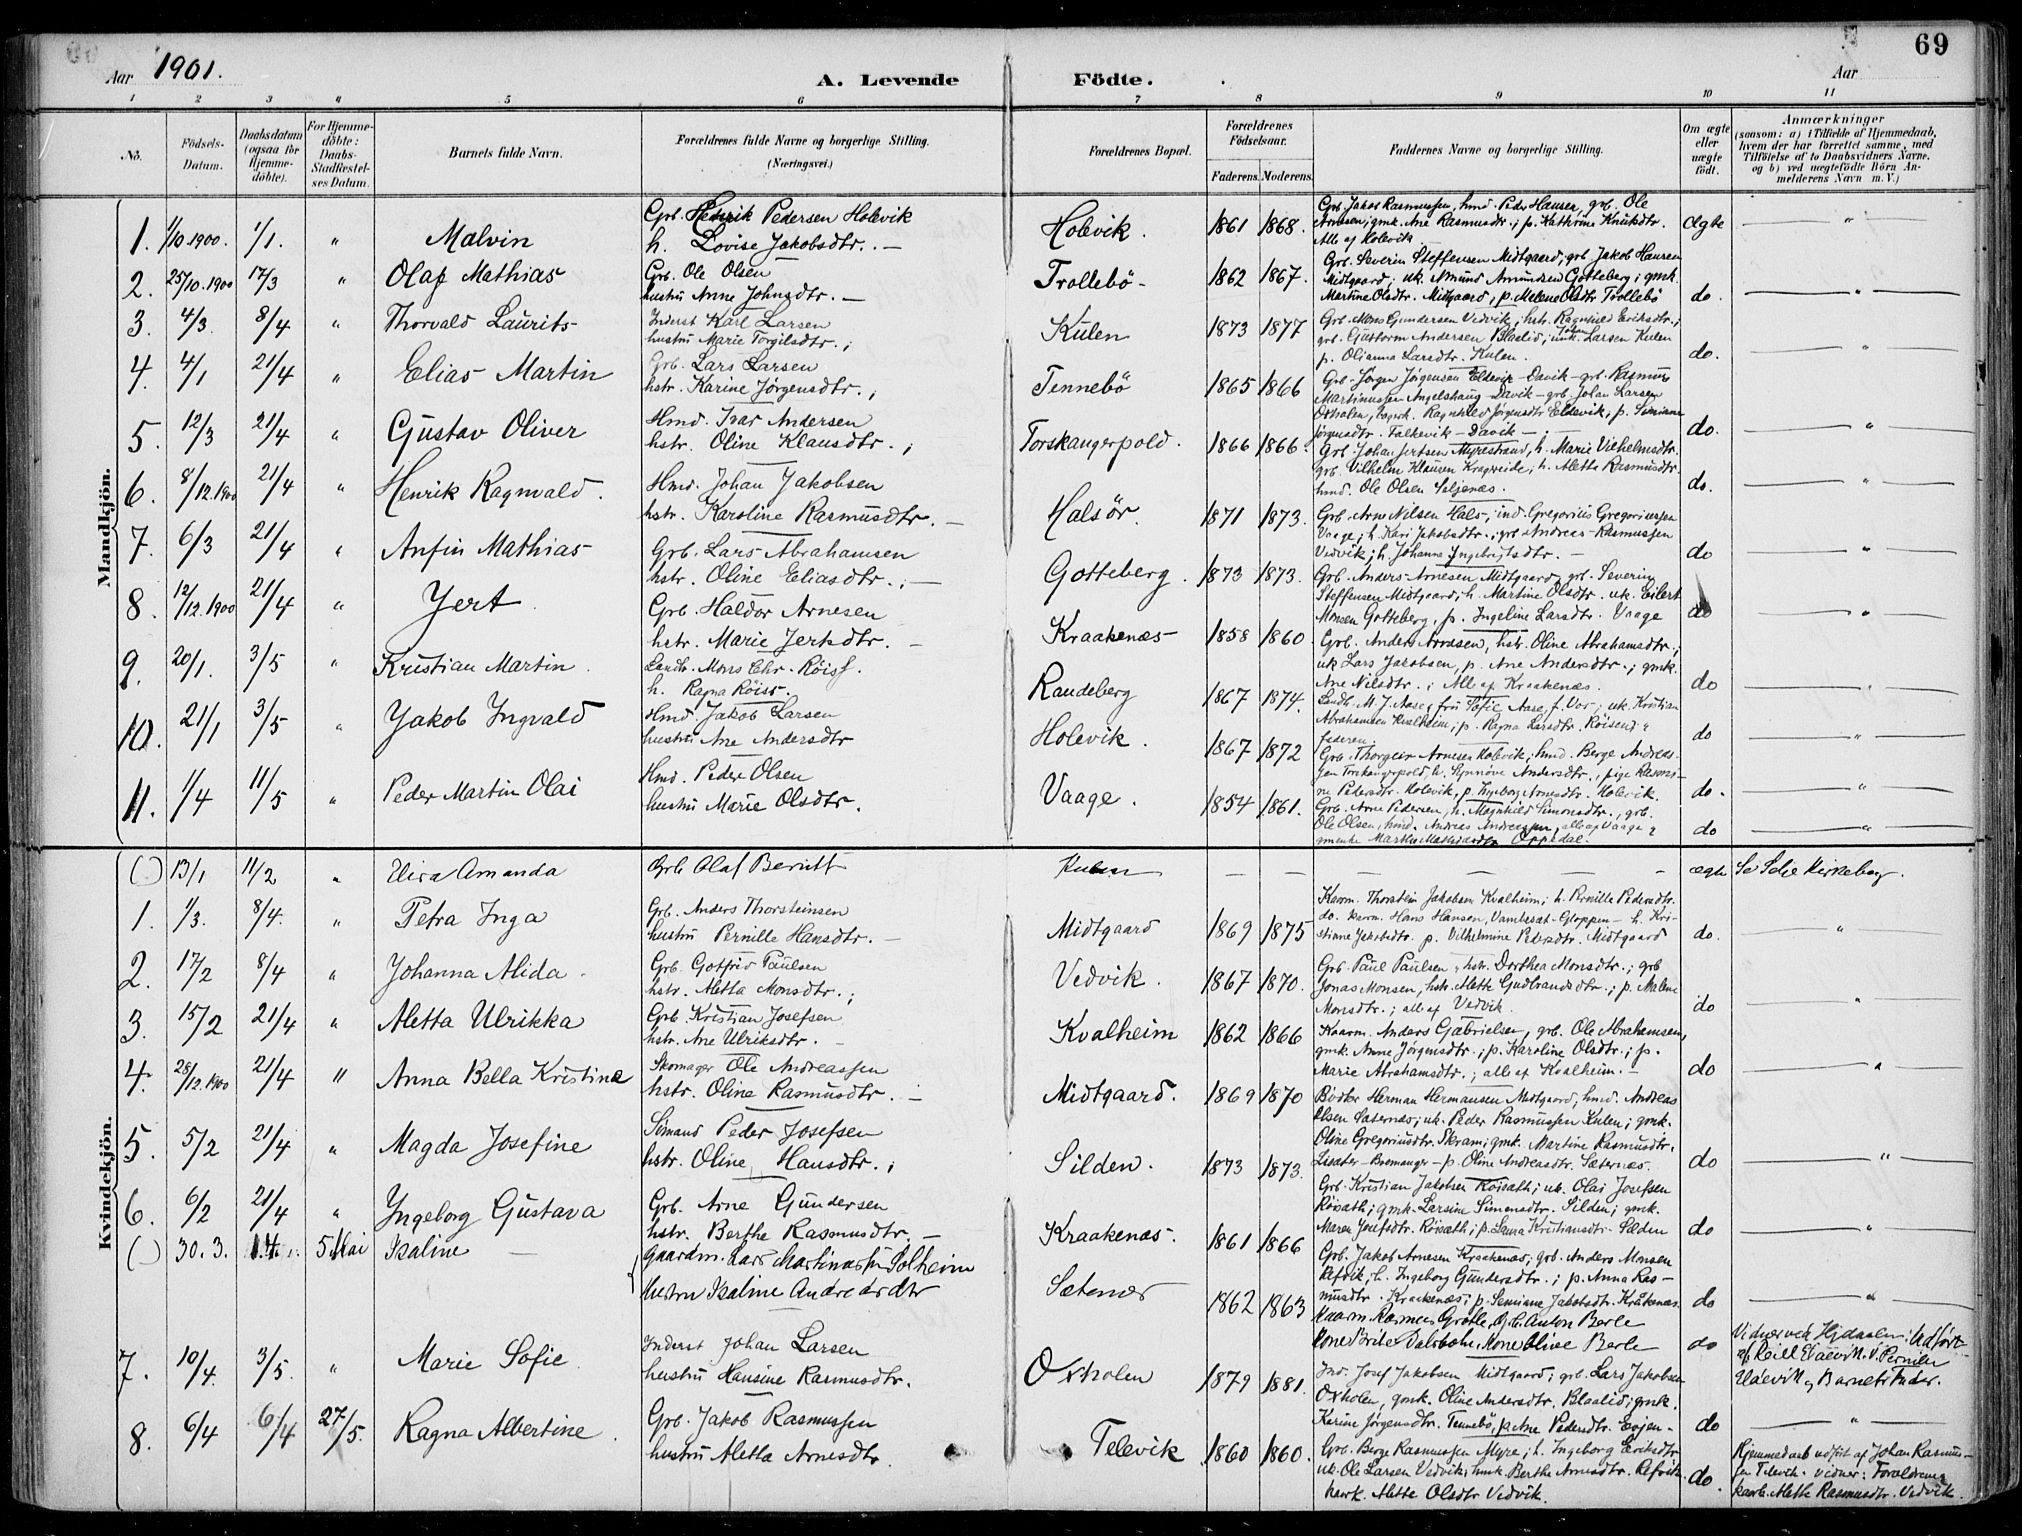 69
Aar 1901.
A. Levende Födte.
Aar
1 2 3 4 5 6 7 8 9 10 11
No. Födsels-Datum. Daabsdatum (ogsaa for Hjemme-döbte). For Hjemme-döbte: Daabs-Stadfestel-ses Datum. Barnets fulde Navn. Forældrenes fulde Navne og borgerlige Stilling. (Næringsvei.) Forældrenes Bopæl. Forældrenes Födselsaar. Faderens. Moderens. Faddernes Navne og borgerlige Stilling. Om ægte eller uægte født. Anmærkninger (saasom: a) i Tilfælde af Hjemmedaab, hvem der har forrettet samme, med Tilföielse af to Daabsvidners Navne, og b) ved uægtefödte Börn An-melderens Navn m. V.)
Mandkjön.
1. 1/10.1900. 1/1. " Malvin Grb. Henrik Pedersen Holevik
h. Lovise Jakobsdtr. — Holevik. 1861 1868. Grb. Jakob Rasmussen, hmd. Peder Hansen, grb. Ole
Arnesen; gmk. Ane Rasmusdtr.; p. Kathrine Knudsdtr.
Alle af Holevik Ægte "
2. 25/10.1900 17/3 " Olaf Mathias Grb. Ole Olsen
hustru Anne Johnsdtr. — Trollebö 1862 1867. Grb. Severin Steffensen Midtgaard; grb. Jakob Hansen
Midtgaard; uk. Amund Amundsen Gotteberg; gmk.
Martine Olsdtr. Midtgaard; p. Malene Olsdtr Trollebö do. "
3. 4/3. 8/4 " Thorvald Laurits Inderst Karl Larsen
hustru Marie Torgilsdtr.; Kulen 1873 1877 Grb. Mons Gundersen Vedvik; hstr. Ragnhild Eriksdtr.;
grb. Guttorm Andersen Blaalid; umk. Larsen Kulen
p. Olianna Larsdtr. Kulen. do. "
4. 4/1 21/4 " Elias Martin Grb. Lars Larsen
hstr. Karine Jørgensdtr.; Tennebö 1865 1866 Grb. Jørgen Jørgensen Eldevik - Davik - grb. Rasmus
Martinussen Angelshaug - Davik - grb. Johan Larsen
Oxholen, Ragnhild Jørgensdtr Eldevik; p. Simiane
Jørgensdtr. Falkevik - Davik do. "
5. 12/3 21/4 " Gustav Oliver Hmd. Ivar Andersen
hstr. Oline Klausdtr.; Torskangerpold. 1866 1866. Grb. Johan Jertsen Myrestrand, h. Marie Vilhelmsdtr.
grb. Vilhelm Klausen Kragereide; h. Alette Rasmusdtr.
hmd. Ole Olsen Seljenæs. do. "
6. 8/12.1900 21/4 " Henrik Ragnvald. Hmd. Johan Jakobsen
hstr. Karoline Rasmusdtr. — Halsör. 1871 1873. Grb. Arne Nilsen Hals, ind. Gregorius Gregoriussen
Vaage; h. Kari Jakobsdtr.; grb. Andreas Rasmussen
Vedvik; h. Johanne Ingebrigtsdtr. do "
7. 6/3 21/4 " Anfin Mathias Grb. Lars Abrahamsen
hstr. Oline Eliasdtr.; — Gotteberg. 1873 1873. Grb. Anders Arnesen Midtgaard, grb. Severin
Steffensen Midtgaard; h. Martine Olsdtr. uk. Eilert
Monsen Gotteberg, p. Ingeline Larsdtr. Vaage do "
8. 12/12.1900 21/4 " Jert. Grb. Haldor Arnesen
hstr. Marie Jertsdtr. — Kraakenæs 1858 1860. Grb. Anders Arnesen, hstr. Oline Abrahamsdtr.;
uk Lars Jakobsen, p. Ane Andersdtr.; gmk.
Ane Nilsdtr.; All af Kraakenæs. do "
9. 20/1. 3/5 " Kristian Martin. Landh. Mons Chr. Röiss.
h. Ragna Röiss. Raudeberg 1867 1874. Landh. M. J. Aase, fru Sofie Aase, f. Vor; uk. Kristian
Abrahamsen Kvalheim; p. Ragna Larsdtr. Röisend
faderen. do "
10. 21/1 3/5 " Jakob Ingvald Hmd. Jakob Larsen
hustru Ane Andersdtr Holevik. 1867 1872 Grb. Thorgeir Arnesen Holevik, hmd. Berge Andreas-
sen Torskangerpold, h. Synnöve Andersdtr., pige Rasmi-
ne Petersdtr. Holevik, p. Ingeborg Arnesdtr. Holevik. do. "
11. 1/4 11/5 " Peder Martin Olai Hmd. Peder Olsen
hustru Marie Olsdtr. Vaage. 1854 1861. Grb. Arne Pedersen, h. Magnhild Simonsdtr., grb.
Ole Olsen, hmd. Andreas Andreassen, alle af Vaage
gmenke Marthe Mathiasdtr Oppedal. do "
Kvindekjön.
( ) 13/1 11/2 " Elira Amanda Grb Olaf Berntt Kulen — — — — — ægte Se Selje Kirkebog.
1. 1/3. 8/4. " Petra Inga Grb. Anders Thorsteinsen
hustru Pernille Hansdtr. — Midtgaard 1869 1875 Kaarm. Thorstein Jakobsen Kvalheim; h. Pernille Pedersdtr.
do. kaarm. Hans Hansen, Vambesæt - Gloppen - h. Kri-
stiane Jakobsdtr. p. Vilhelmine Petersdtr. Midtgaard do. "
2. 17/2 8/4 " Johanna Alida Grb. Gotfred Paulsen
hstr. Aletta Monsdtr.; Vedvik. 1867 1870. Grb. Paul Paulsen, hstr. Dorthea Monsdtr.; grb
Jonas Monsen, hstr. Alette Gudbrandsdtr.; p. Malene
Monsdtr.; all af Vedvik do "
3. 15/2 21/4 " Aletta Ulrikka Grb. Kristian Josefsen
hstr. Ane Ulriksdtr. — Kvalheim 1862 1866 Kaarm. Anders Gabrielsen, grb. Ole Abrahamsen,
gmk. Anne Jørgensdtr.; p. Karoline Olsdtr.; p.
Marie Abrahamsdtr.; all af Kvalheim. do "
4. 28/12.1900 21/4 " Anna Bella Kristine Skomager Ole Andreassen
hstr. Oline Rasmusdtr. — Midtgaard. 1869 1870 Bödker Herman Hermansen Midtgaard, hmd. Andreas
Olsen Sæternæs; uk. Peder Rasmussen Kulen; gmk.
Oline Gregoriusdtr. Skram; gmk. Martine Rasmusdtr.
Lisæter - Bremanger - p. Oline Andreasdtr. Sæternæs. do "
5. 5/2 21/4 " Magda Josefine Sömand Peder Josefsen
hstr. Oline Hansdtr.; Silden. 1873 1873. Grb. Kristian Jakobsen Röisæth; uk. Olai Josefsen
Röisæth; gmk. Larsine Simonsdtr. Silden; gmk.
Maren Josefsdtr. Röisæth; p. Laura Kristiansdtr. Silden do "
6. 6/2 21/4 " Ingeborg Gustava Grb. Arne Gundersen
hstr. Berthe Rasmusdtr. — Kraakenæs. 1861 1866 Grb. Jakob Arnesen Kraakenæs; grb. Anders Monsen
Refvik; h. Ingeborg Gundersdtr.; p. Anna Ras-
musdtr. Kraakenæs; p. Semiane Jakobsdtr. Kråkenæs. do "
( ) 30.3. 14. 5 Mai Isaline — Gaardm. Lars Martinussen Solheim
Hustru Isaline Andreasdtr Sætenæs 1862 1863 Kaarm. Rasmus Grotle, Grb. Anton Berle
Kone Brite Dalsbotn, Kone Oline Berle do Vidner ved Hjdaaben: Udført
af Eldevik. v. Pernille
Eldevik og Barnets Fader.
7. 10/4. 3/5. " Marie Sofie. Inderst Johan Larsen
hustru Hansine Rasmusdtr. Oxholen 1879 1881. Ind. Josef Jakobsen Midtgaard; grb. Lars Jakobsen
Oxholen, gmk. Oline Andersdtr. Blaalid; gmk.
Karine Jørgensdtr. Tennebö, p. Ane Pedersdtr. Evjen. do "
8. 6/4 6/4 27/5. Ragna Albertine. Grb. Jakob Rasmussen
hustru Aletta Arnesdtr. Televik 1860 1860. Grb. Berge Rasmussen Myre; h. Ingeborg Eriksdtr
uk. Ole Larsen Vedvik; hmk. Berthe Arnesdtr. Refvik
kaark. Alette Olsdtr Vedvik. do. Hjemmedaab udført af Johan Rasmus-
sen Televik. Vidner: Forældrene
kaark. Alette Rasmusdtr. Vedvik.